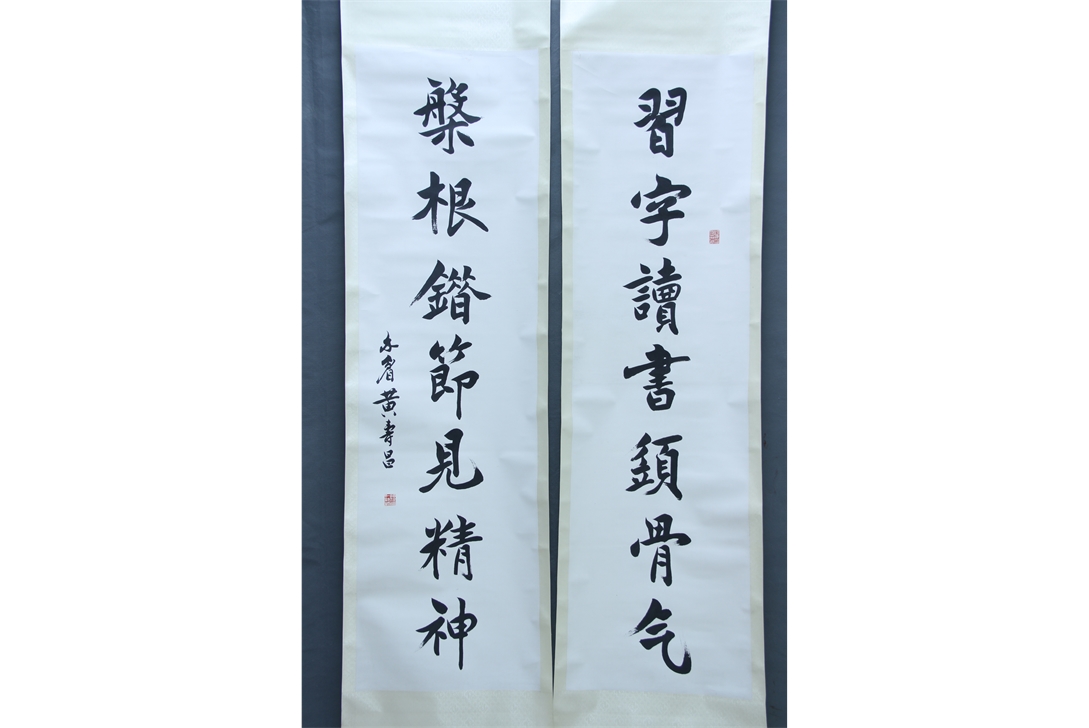 習字讀書須骨气
槃根錯節見精神
黄壽昌